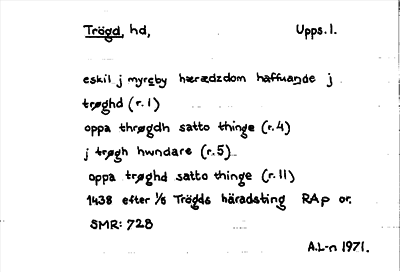 Trögd, hd, Upps. l.
eskil j myreby hæredzdom haffuande j
trøghd (r. 1)
oppa thrøgdh satto thinge (r. 4)
j trøgh hwndare (r. 5)
oppa trøghd satto thinge (r. 11)
1438 efter 1/6 Trögds häradsting RAp or.
SMR: 728
A.L-n 1971.